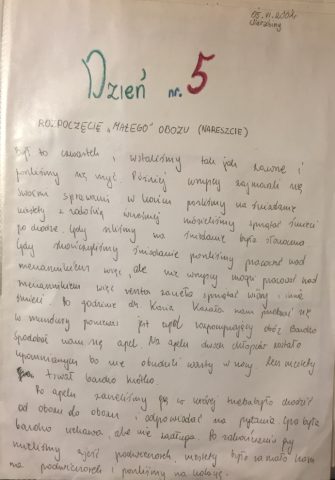 05.VI.2001r
Dzień nr. 5
ROZPOCZĘCIE „MAŁEGO" OBOZU (NARESZCIE)
Był to czwartek i wstaliśmy tak jak zawsze i
poszliśmy się myć. Później wszyscy zajmowali się
swoimi sprawami w końcu poszliśmy na śniadanie
niestety z radością musieliśmy sprzątać śmieci
po dworze. Gdy szliśmy na śniadanie była stołówka
Gdy skończyliśmy śniadanie poszliśmy pracować nad
więc ale nie wszyscy mogli pracować nad
więc reszta zaczęła sprzątać wiaty i inne
śmieci. O godzinie dh Kasia kazała nam przebrać się
w mundury ponieważ jest apel rozpoczynający obóz. Bardzo
spodobał nam się apel. Na apelu dwóch chłopców zostało
upomnianych bo nie obudzili warty w nocy. Lecz niestety
trwał bardzo krótko.
Po apelu zaczęliśmy grę w której trzeba było chodzić
od obozu do obozu i odpowiadać na pytania. Gra była
bardzo ciekawa, ale nie Po zakończeniu gry
musieliśmy zjeść podwieczorek niestety było za mało
na podwieczorek i poszliśmy na kolację.